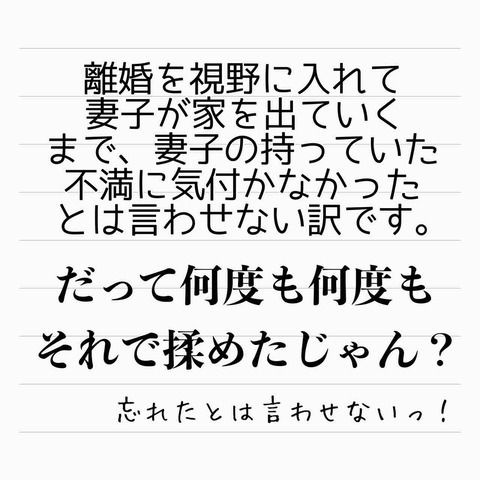 離婚を視野に入れて
妻子が家を出ていく
まで、妻子の持っていた
不満に気付かなかった
とは言わせない訳です。
だって何度も何度も
それで揉めたじゃん？
忘れたとは言わせないっ！